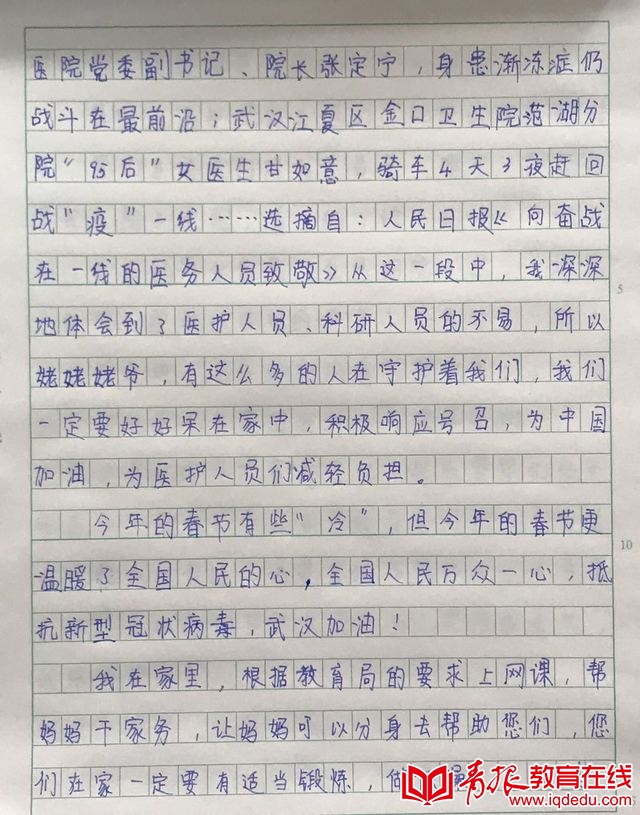 医院党委副书记、院长张定宁，身患渐冻症仍
战斗在最前沿；武汉江夏区金口卫生院范湖分
院“95后”女医生甘如意，骑车4天3夜赶回
战“疫”一线……选摘自：人民日报《向奋战
在一线的医务人员致敬》从这一段中，我深深
地体会到了医护人员、科研人员的不易，所以
姥姥姥爷，有这么多的人在守护着我们，我们
一定要好好呆在家中，积极响应号召，为中国
加油，为医护人员们减轻负担。
5
今年的春节有些“冷”，但今年的春节更
温暖了全国人民的心，全国人民万众一心，抵
抗新型冠状病毒，武汉加油！
10
我在家里，根据教育局的要求上网课，帮
妈妈干家务，让妈妈可以分身去帮助您们，您
们在家一定要有适当锻炼，做
青报教育在线
www.iqdedu.com